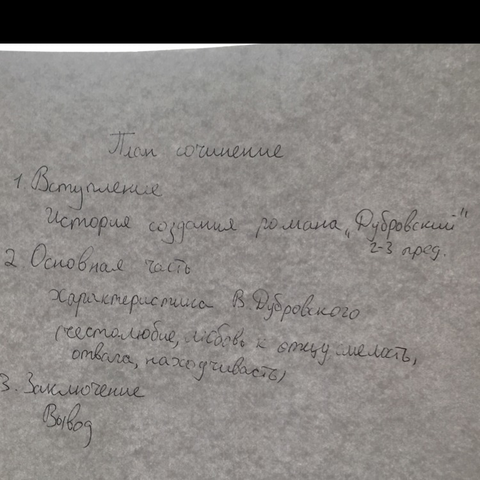 План сочинение
1. Вступление
История создания романа „Дубровский"
2-3 пред.
2. Основная часть
Характеристика В. Дубровского
(честолюбие, любовь к отцу, смелость,
отвага, находчивость)
3. Заключение
Вывод